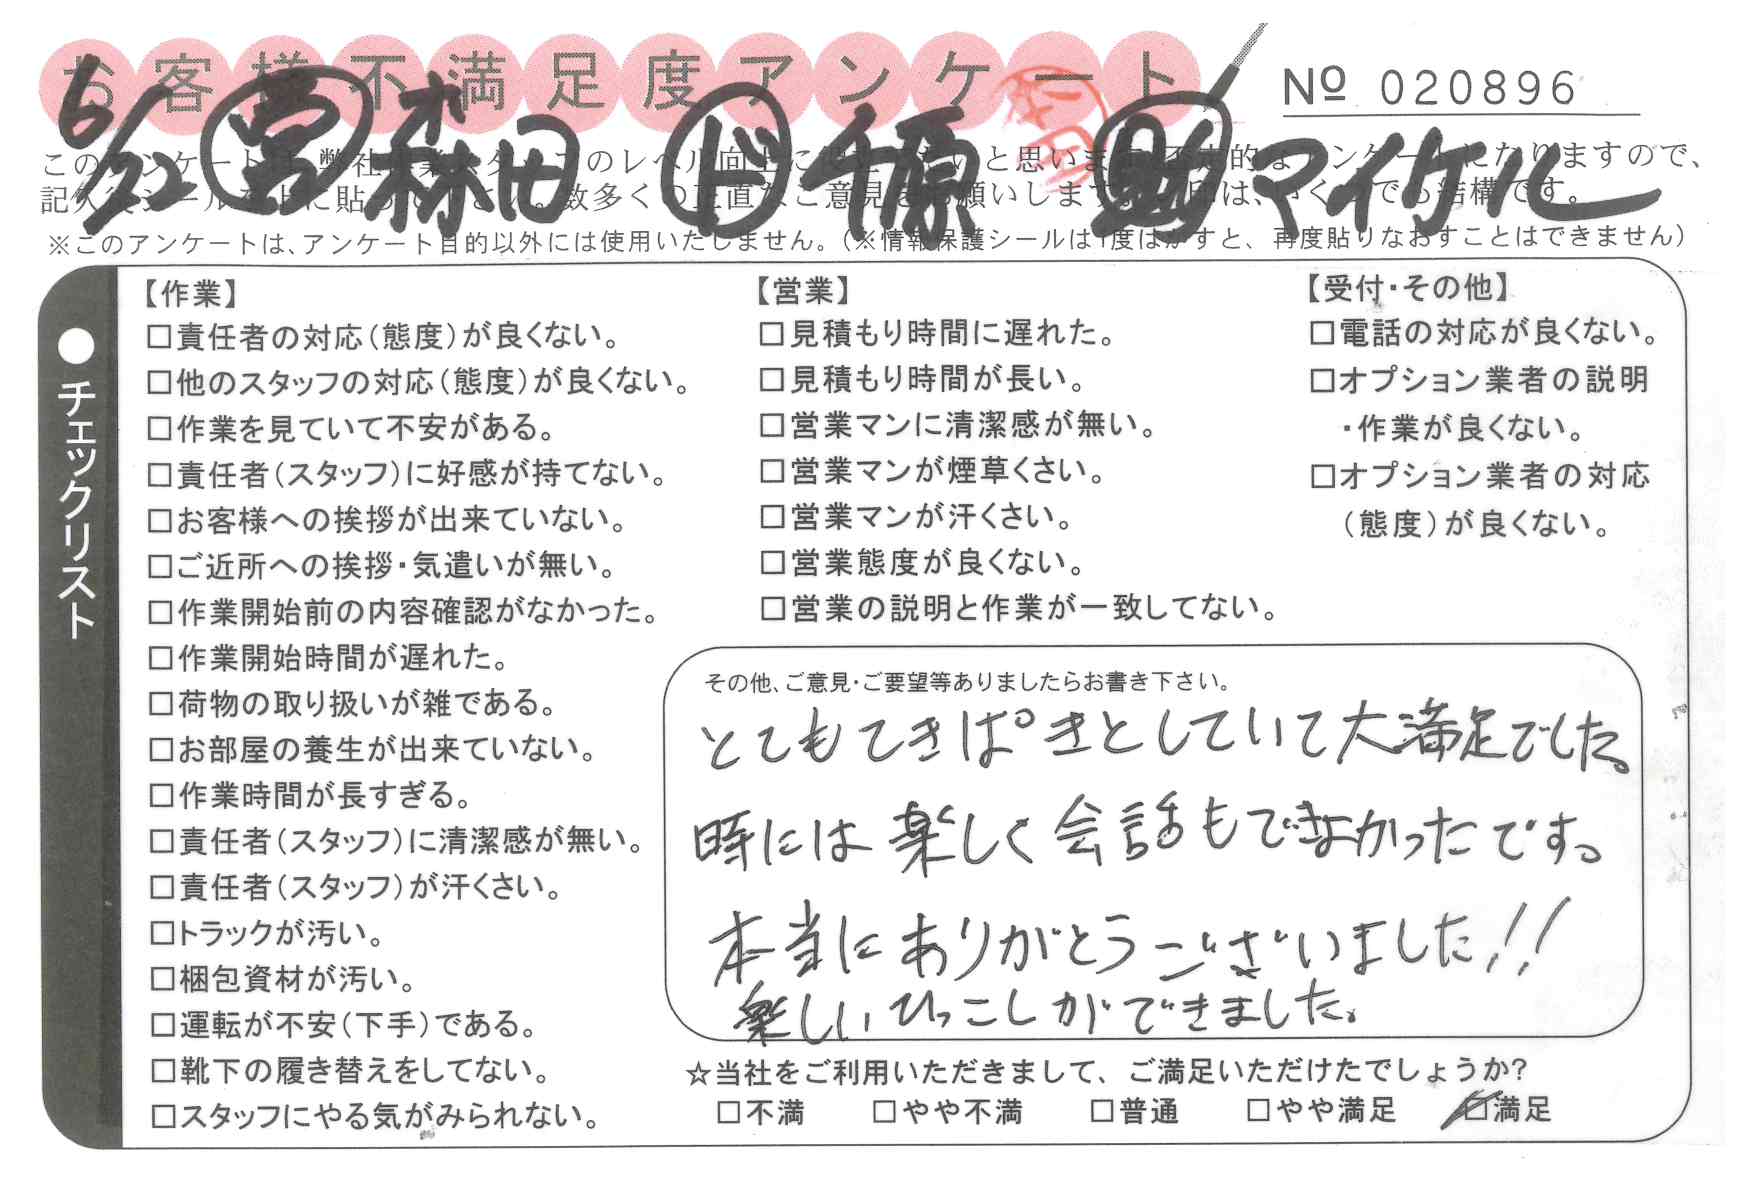 お客様不満足度アンケート
№ 020896
6/22 営 森田 ド 千原 助 マイケル
このアンケートは、弊社作業スタッフのレベル向上に
と思います。
アンケートになりますので、
記入後シールを上に貼ってください。数多くの正直なご意見をお願いします。
印は、いくつでも結構です。
※このアンケートは、アンケート目的以外には使用いたしません。(※情報保護シールは1度はがすと、再度貼りなおすことはできません)
●チェックリスト
【作業】
□責任者の対応(態度)が良くない。
□他のスタッフの対応(態度)が良くない。
□作業を見ていて不安がある。
□責任者(スタッフ)に好感が持てない。
□お客様への挨拶が出来ていない。
□ご近所への挨拶・気遣いが無い。
□作業開始前の内容確認がなかった。
□作業開始時間が遅れた。
□荷物の取り扱いが雑である。
□お部屋の養生が出来ていない。
□作業時間が長すぎる。
□責任者(スタッフ)に清潔感が無い。
□責任者(スタッフ)が汗くさい。
□トラックが汚い。
□梱包資材が汚い。
□運転が不安(下手)である。
□靴下の履き替えをしてない。
□スタッフにやる気がみられない。
【営業】
□見積もり時間に遅れた。
□見積もり時間が長い。
□営業マンに清潔感が無い。
□営業マンが煙草くさい。
□営業マンが汗くさい。
□営業態度が良くない。
□営業の説明と作業が一致してない。
【受付・その他】
□電話の対応が良くない。
□オプション業者の説明
・作業が良くない。
□オプション業者の対応
(態度)が良くない。
その他、ご意見・ご要望等ありましたらお書き下さい。
とてもてきぱきとしていて大満足でした。
時には楽しく会話もできよかったです。
本当にありがとうございました!!
楽しいひっこしができました。
☆当社をご利用いただきまして、ご満足いただけたでしょうか?
□不満 □やや不満 □普通 □やや満足 ☑満足